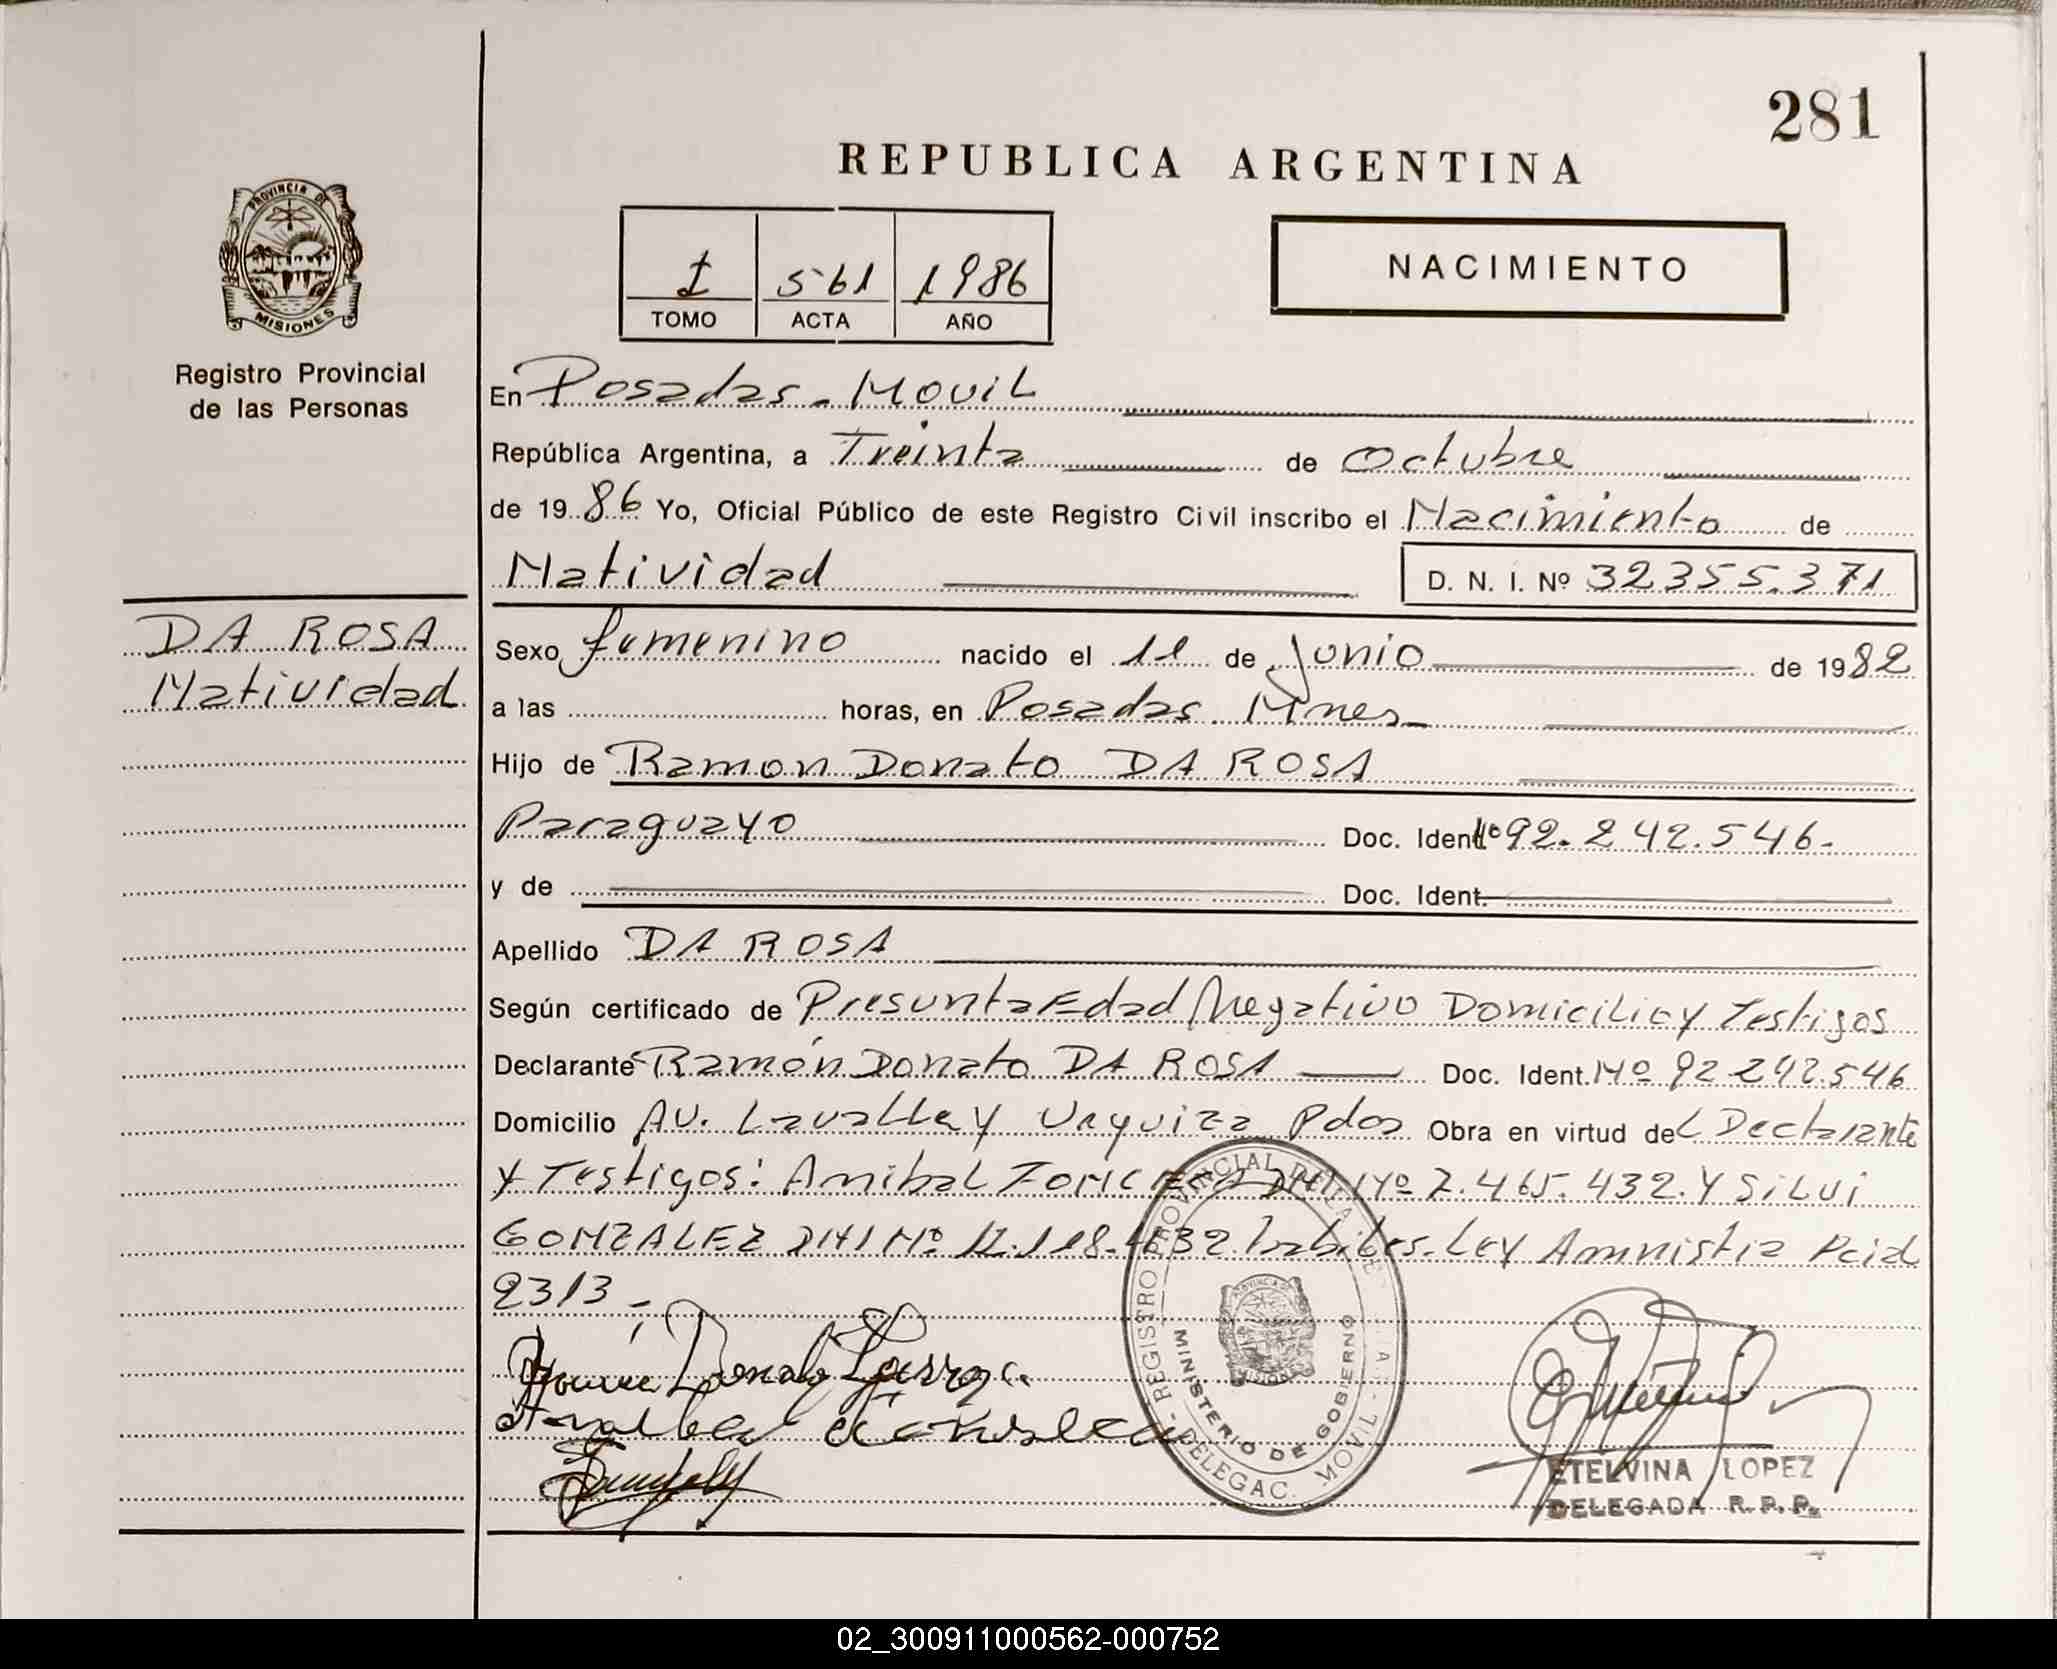 281
REPUBLICA ARGENTINA
PROVINCIA DE
MISIONES
I 561 1986
TOMO ACTA AÑO
NACIMIENTO
Registro Provincial
de las Personas
En Posadas - Movil
República Argentina, a Treinta de Octubre
de 1986 Yo, Oficial Público de este Registro Civil inscribo el Nacimiento de
Natividad D. N. I. Nº 32355.371
DA ROSA
Natividad
Sexo femenino nacido el 11 de Junio de 1982
a las horas, en Posadas Mnes
Hijo de Ramon Donato DA ROSA
Paraguayo Doc. Ident. Nº 92.242.546.
y de Doc. Ident.
Apellido DA ROSA
Según certificado de Presunta Edad Negativo Domicilio y Testigos
Declarante Ramón Donato DA ROSA Doc. Ident. Nº 92 242.546
Domicilio AV. Lavalle y Urquiza Pdas Obra en virtud del Declarante
y Testigos: Anibal DNI Nº 7.465.432. y SiLvi
GONZALEZ DNI Nº 11.118.432 habiles. Ley Amnistia Pcial
2313 -
REGISTRO PROVINCIAL DE LAS PERSONAS - DELEGAC. MOVIL
MINISTERIO DE GOBIERNO
ETELVINA LOPEZ
DELEGADA R. P. P.
02_300911000562-000752